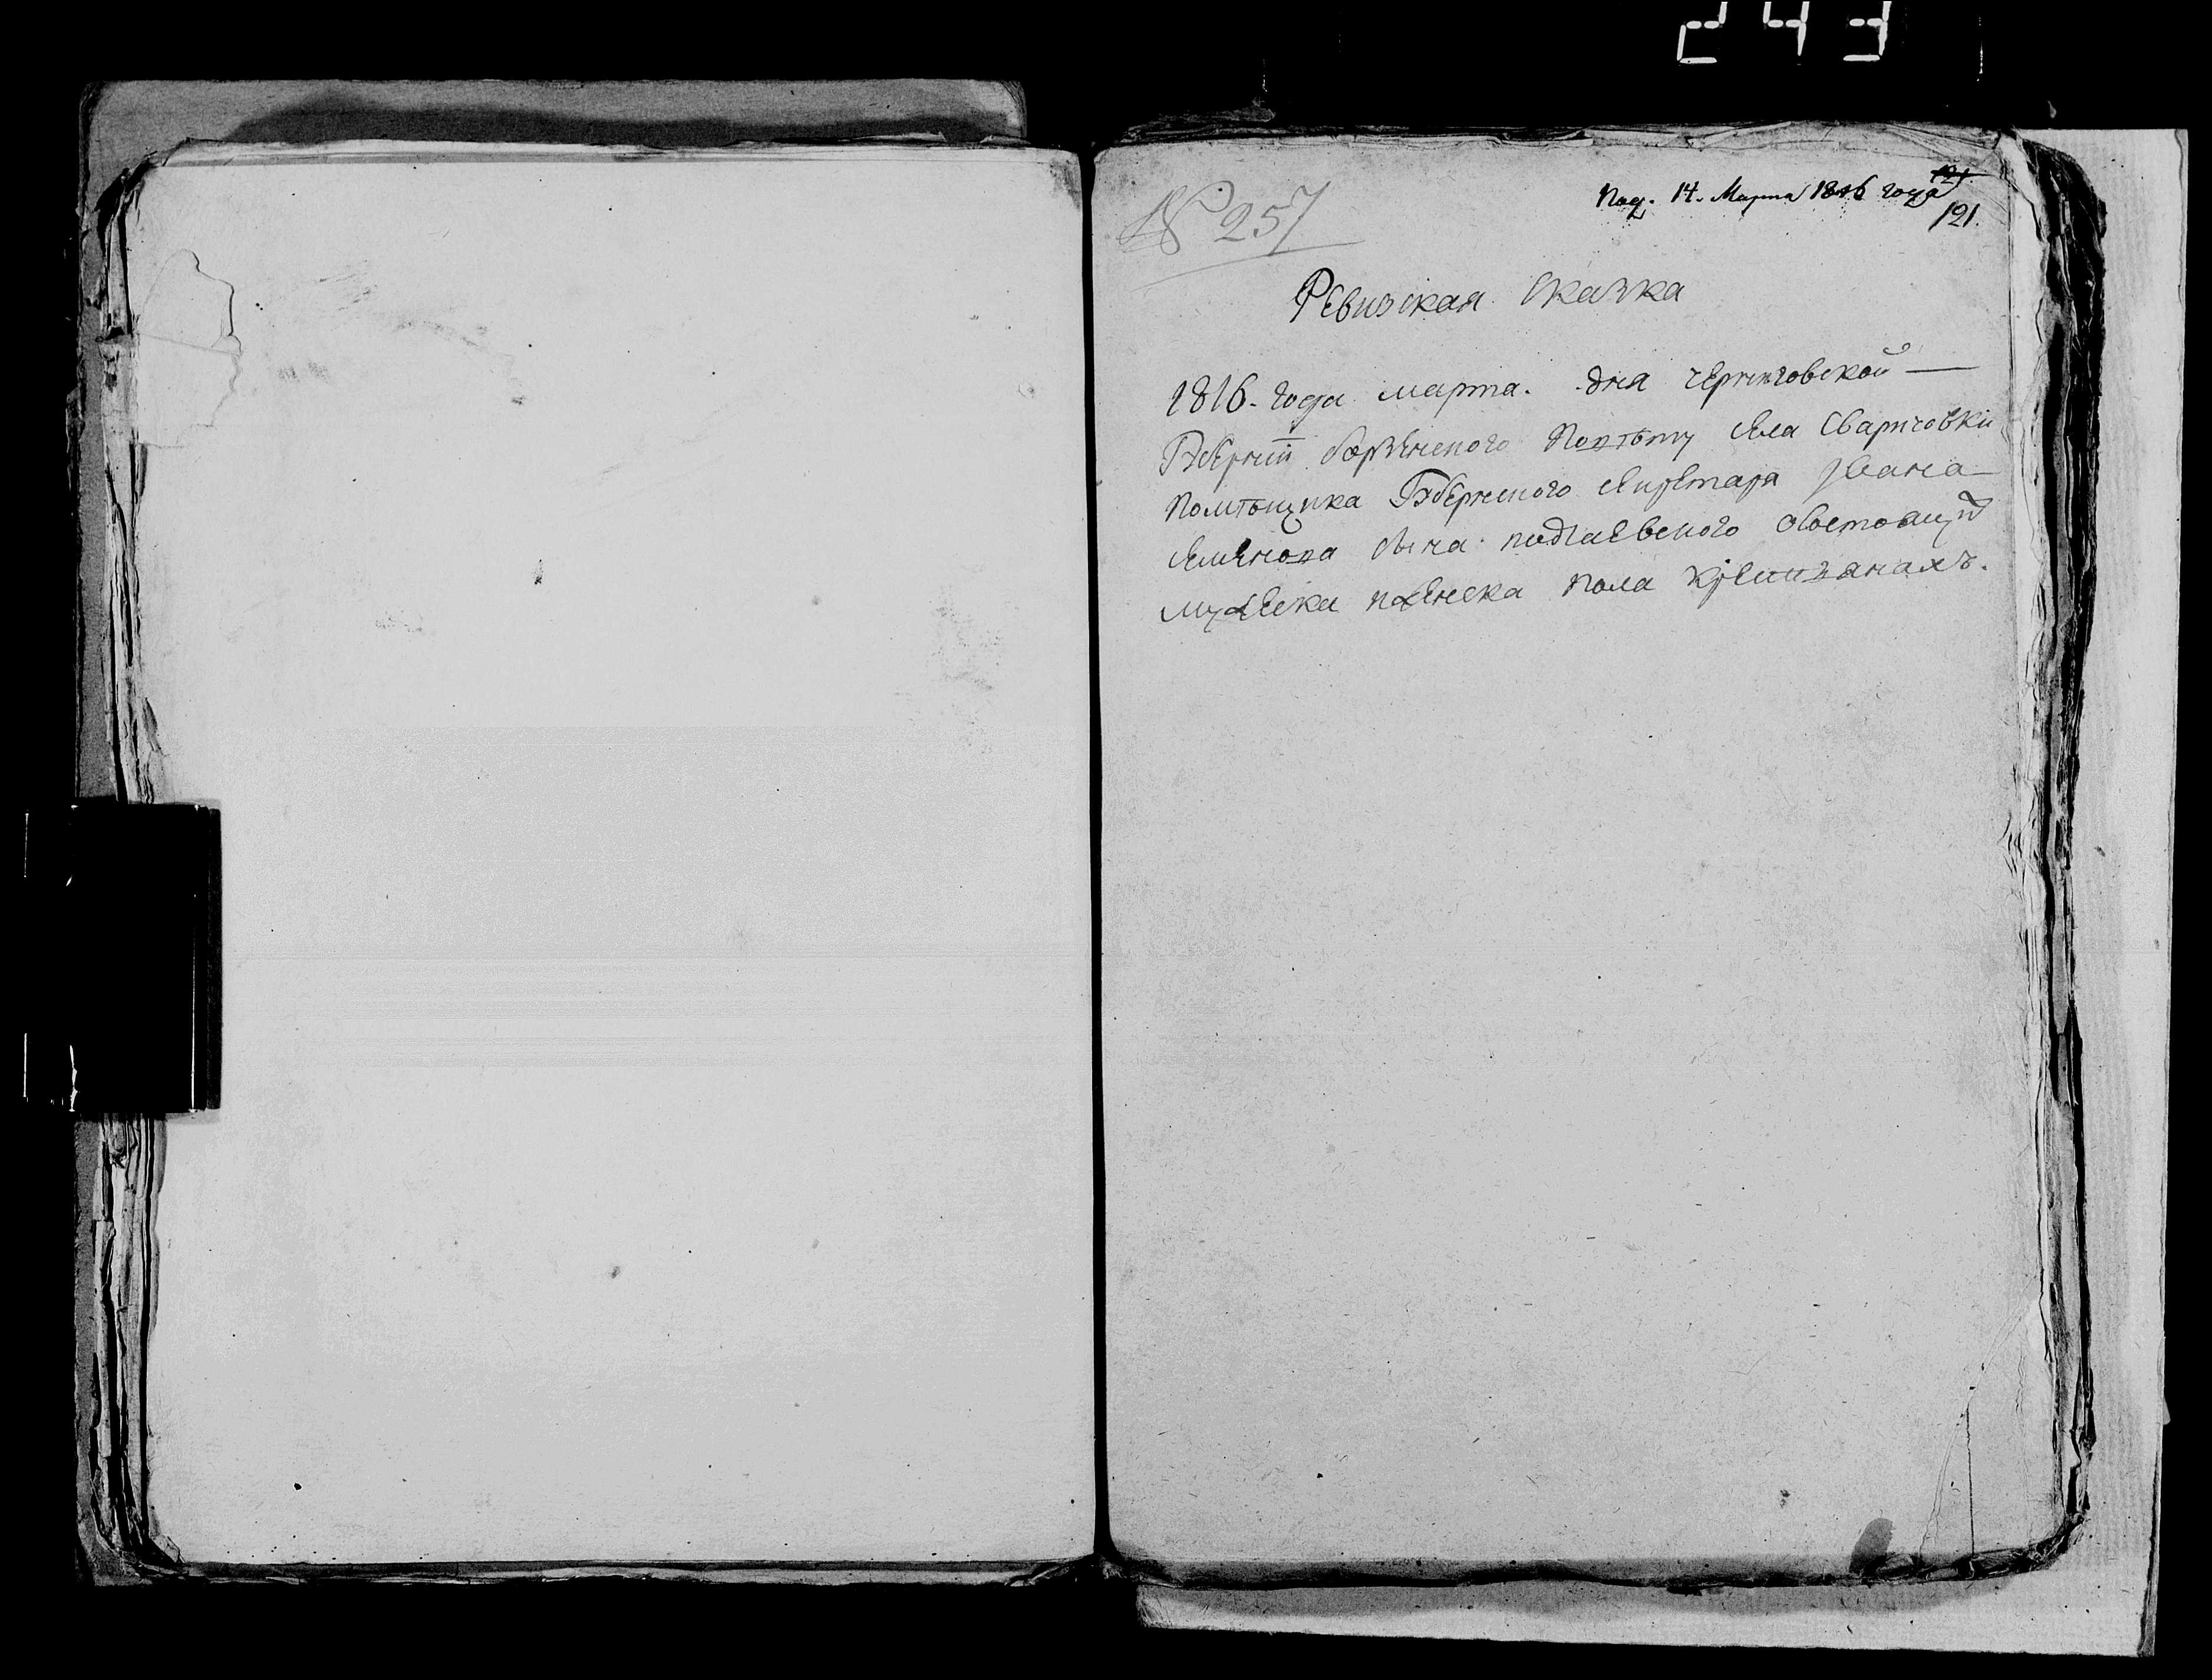 243
№ 257
Под. 14. Марта 1816 года
121.
Ревизская сказка
1816. года марта. дня черниговской
Губернии борзенского повѣту села Сваричовки
помѣщика Губернского секретаря Ивана
Семенова сына о состоящих
мужеска и женска пола крестьянахъ.